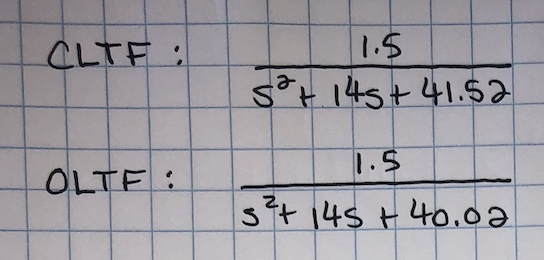 CLTF: 1.5
s²+ 14s + 41.52
OLTF: 1.5
s²+ 14s + 40.02